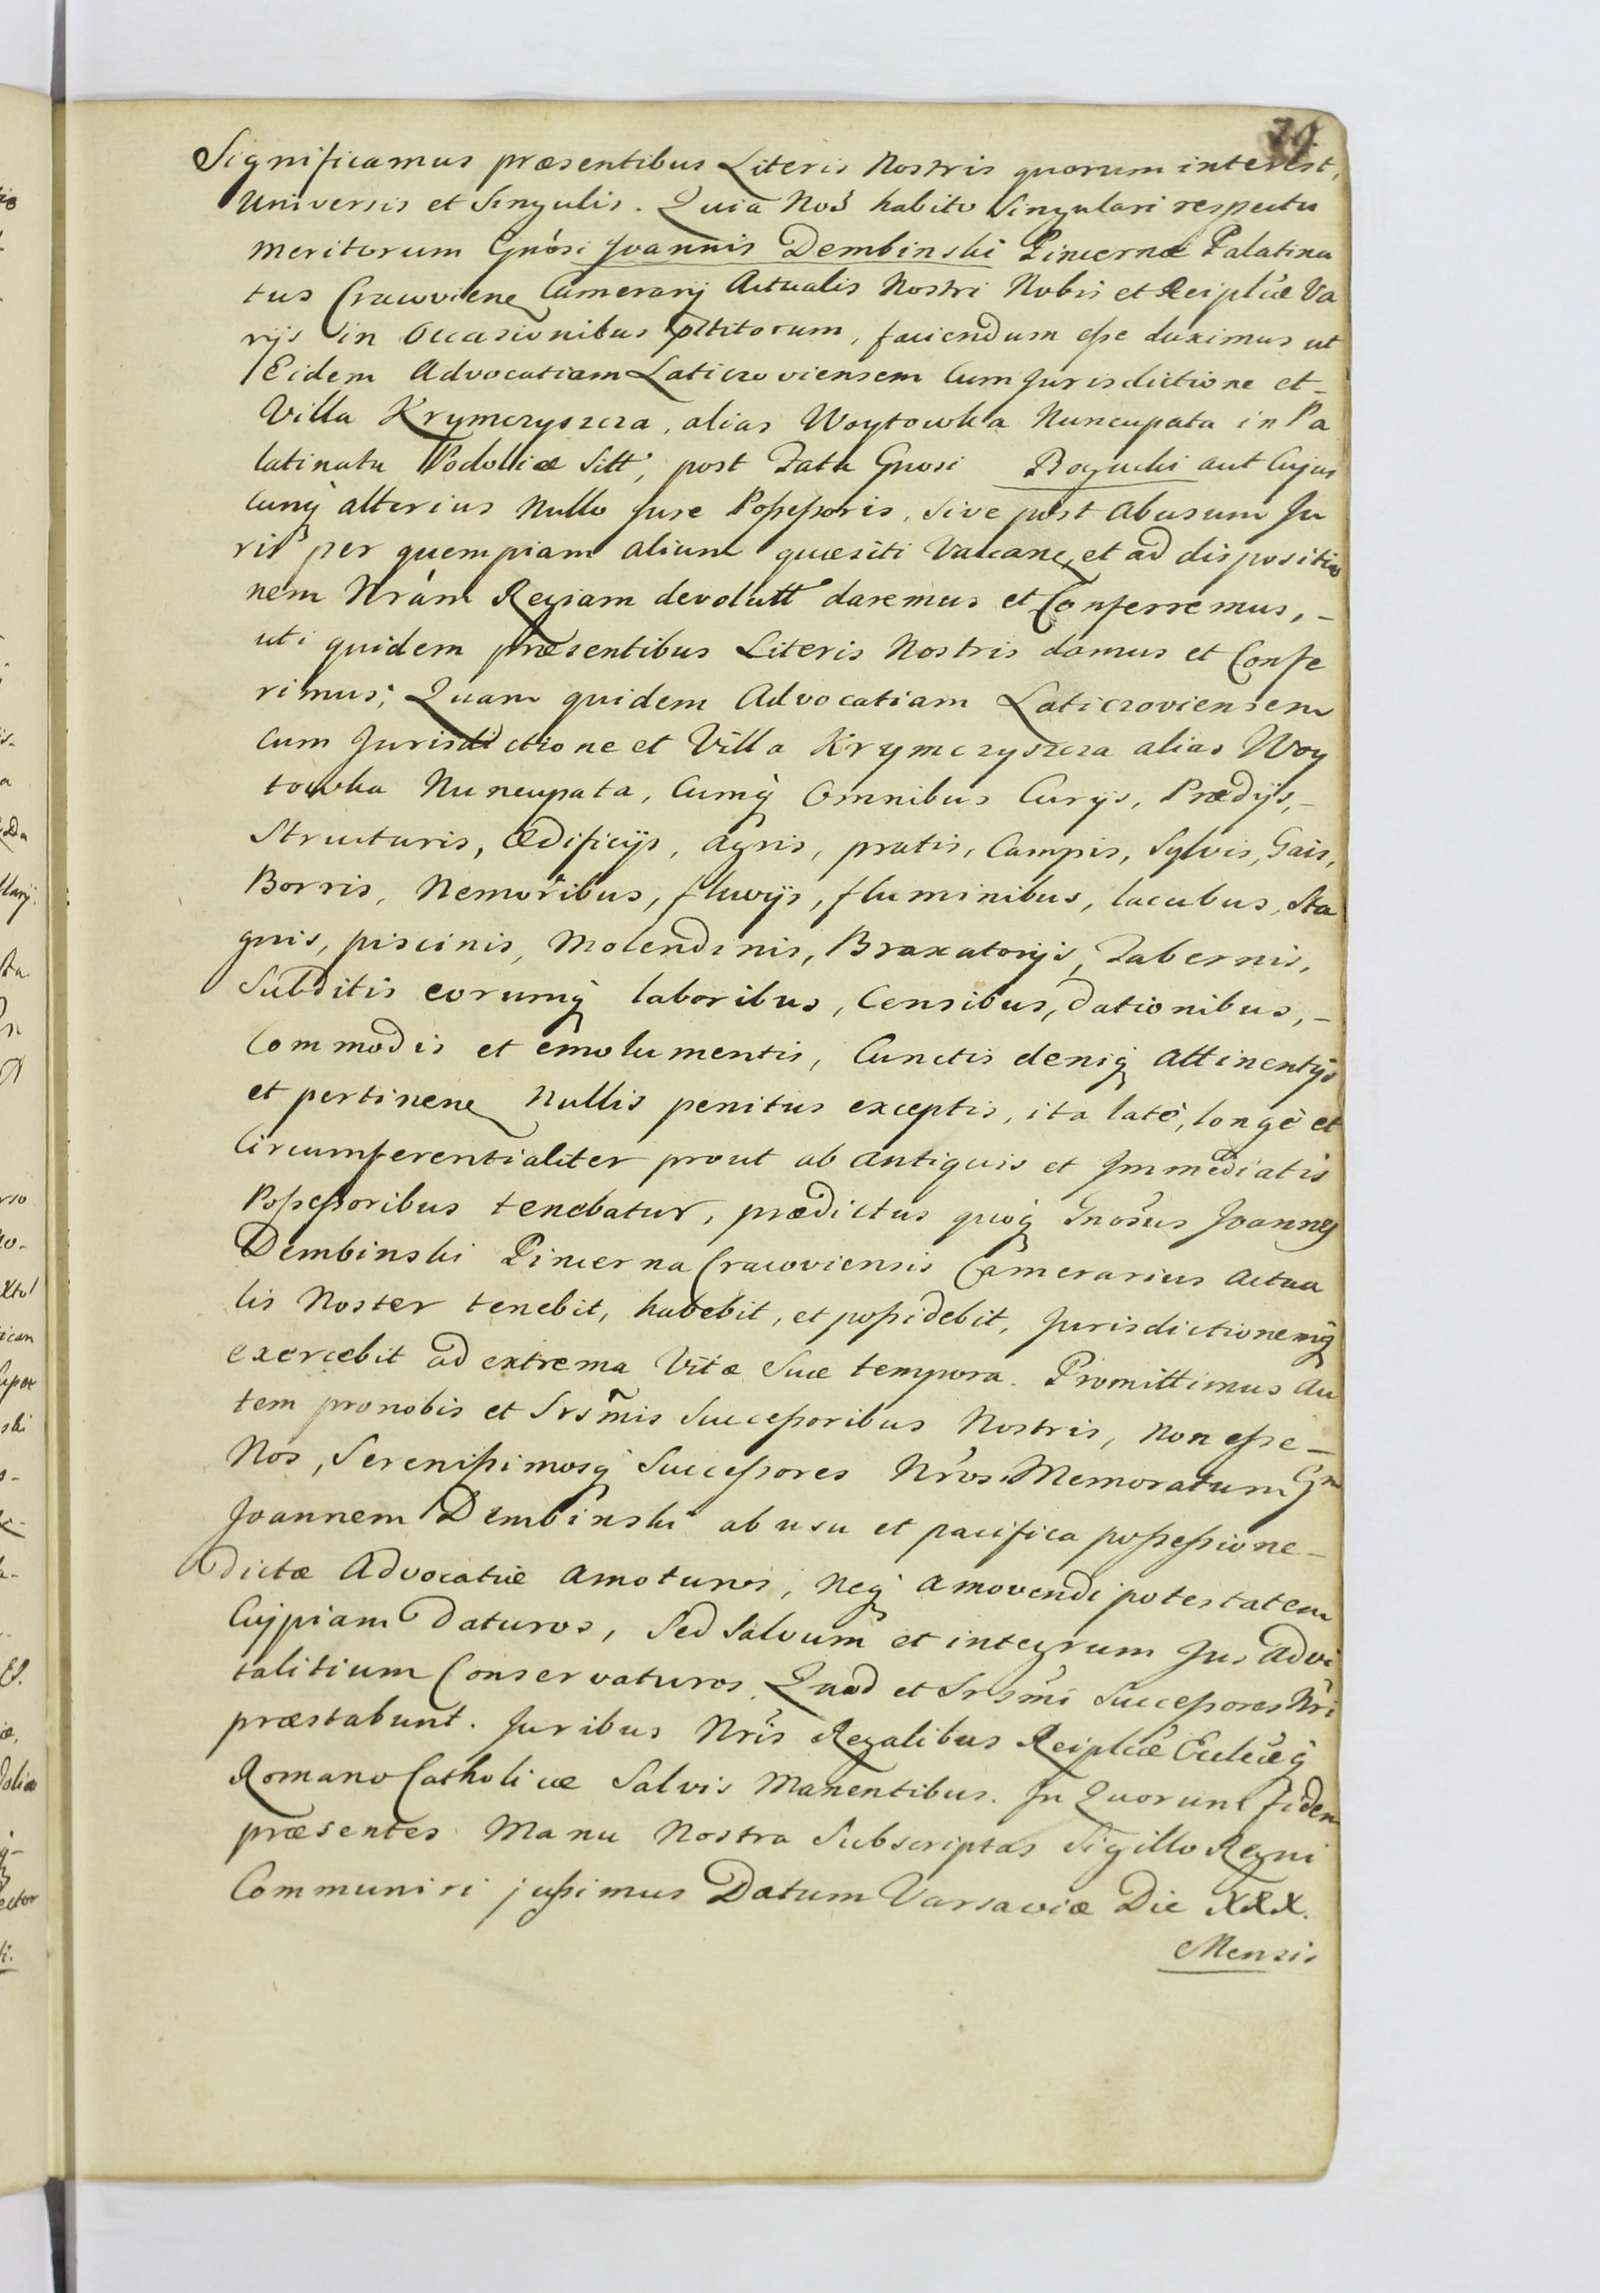 Significamus præsentibus Literis Nostris quorum interest,
Universis et Singulis. Quia Nos habito Singulari respectu
meritorum Gnósi Joannis Dembinski Pincernæ Palatina
tus Cracoviene Camerarij Actualis Nostri Nobis et Reiplicæ Va
rijs in Occasionibus pttitorum, faciendum eſse duximus ut
Eidem Advocatiam Laticzoviensem Cum Jurisdictione et -
Villa Krymczyszcza, alias Woytowka Nuncupata in Pa
latinatu Podoliæ Sitt', post Fata Gnosi Bogucki aut Cujus
cunq alterius Nullo Jure Poſseſsoris, Sive post Abusum Ju
ris per quempiam alium quæsiti Vacane, et ad dispositio
nem Nrám Regiam devolutt daremus et Conferremus, -
uti quidem præsentibus Literis Nostris damus et Confe
rimus; Quam quidem Advocatiam Laticzoviensem
Cum Jurisdictione et Villa Krymczyszcza alias Woy
towka Nuncupata, Cumq Omnibus Curijs, Prædijs, -
Structuris, Ædificijs, Agris, pratis, Campis, Sylvis, Gais,
Borris, Nemoribus, fluvijs, fluminibus, lacubus, Sta
gnis, piscinis, Molendinis, Braxatorijs, Tabernis,
Subditis eorumq laboribus, Censibus, dationibus, -
Commodis et emolumentis, Cunctis deniq Attinentijs
et pertinene Nullis penitus exceptis, ita laté, longé et
Circumferentialiter prout ab antiquis et Immediatis
Poſseſsoribus tenebatur, prædictus quoq Gnosus Joannes
Dembinski Pincerna Cracoviensis Camerarius Actua
lis Noster tenebit, habebit, et poſsidebit, Jurisdictionemq
exercebit ad extrema Vitæ Suæ tempora. Promittimus Au
tem pro nobis et Srsm̃is Succeſsoribus Nostris, Non eſse -
Nos, Sereniſsimosq Succeſsores Nros Memoratum Gn
Joannem Dembinski ab usu et pacifica poſseſsione -
dictæ Advocatiæ Amoturos, Neq Amovendi potestatem
Cuipiam Daturos, Sed Salvum et integrum Jus Advi
talitium Conservaturos. Quod et Srsmi Succeſsores Nri
præstabunt. Juribus Nris Regalibus Reiplicæ Ecclæq
Romano Catholicæ Salvis Manentibus. In Quorum fidem
præsentes Manu Nostra Subscriptas Sigillo Regni
Communiri juſsimus Datum Varsaviæ Die XXX.
Mensis